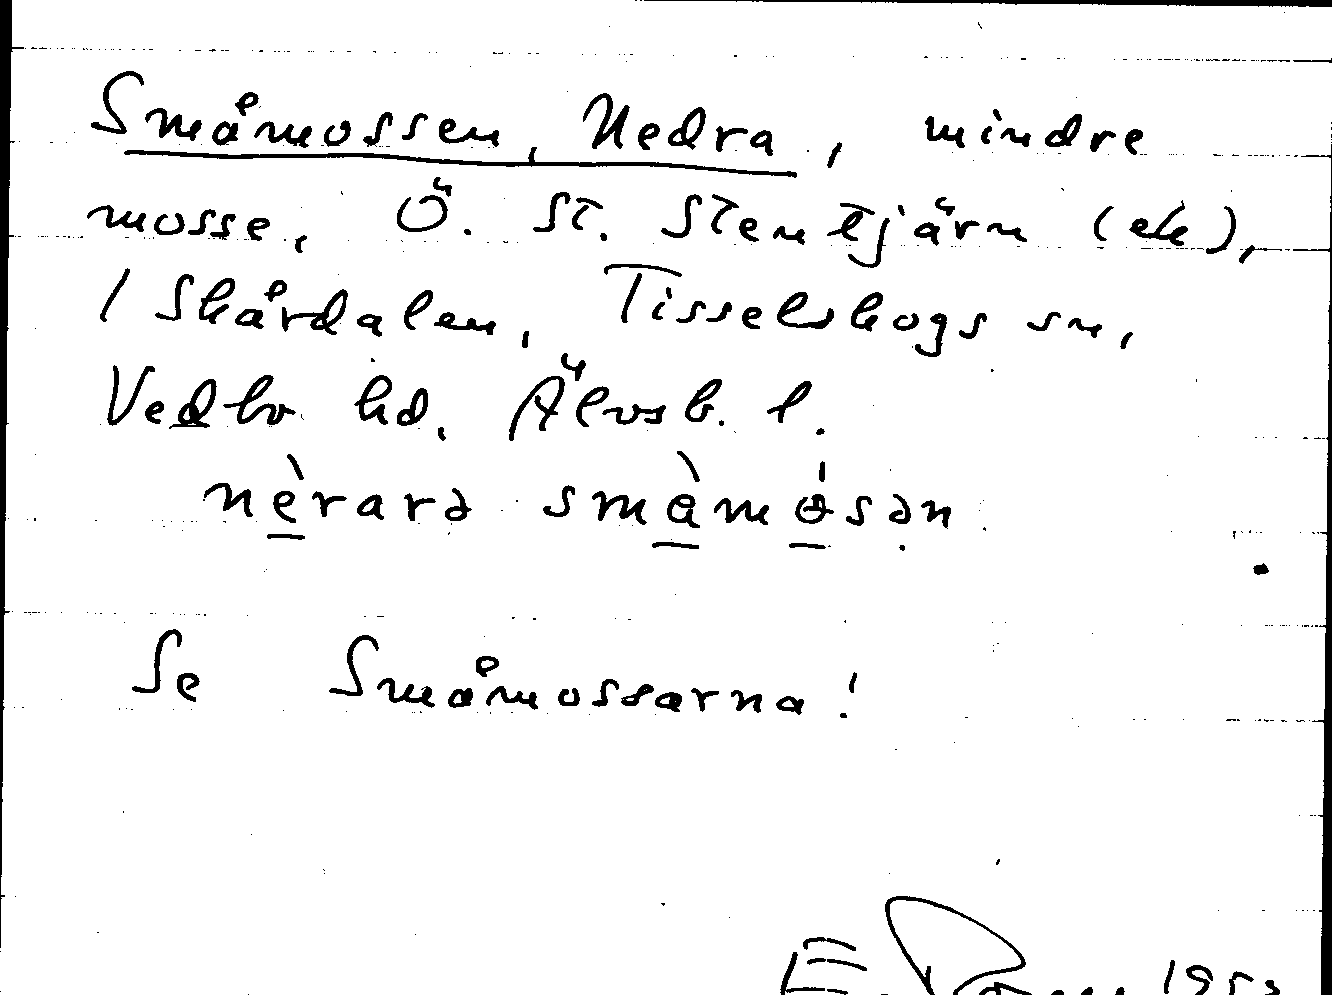 Småmossen, Nedra, mindre
mosse, Ö. St. Stentjärn (ek),
/ Skårdalen, Tisselskogs sn,
Vedbo hd. Älvsb. l.
nèrarə smàmósən
Se Småmossarna!
E.